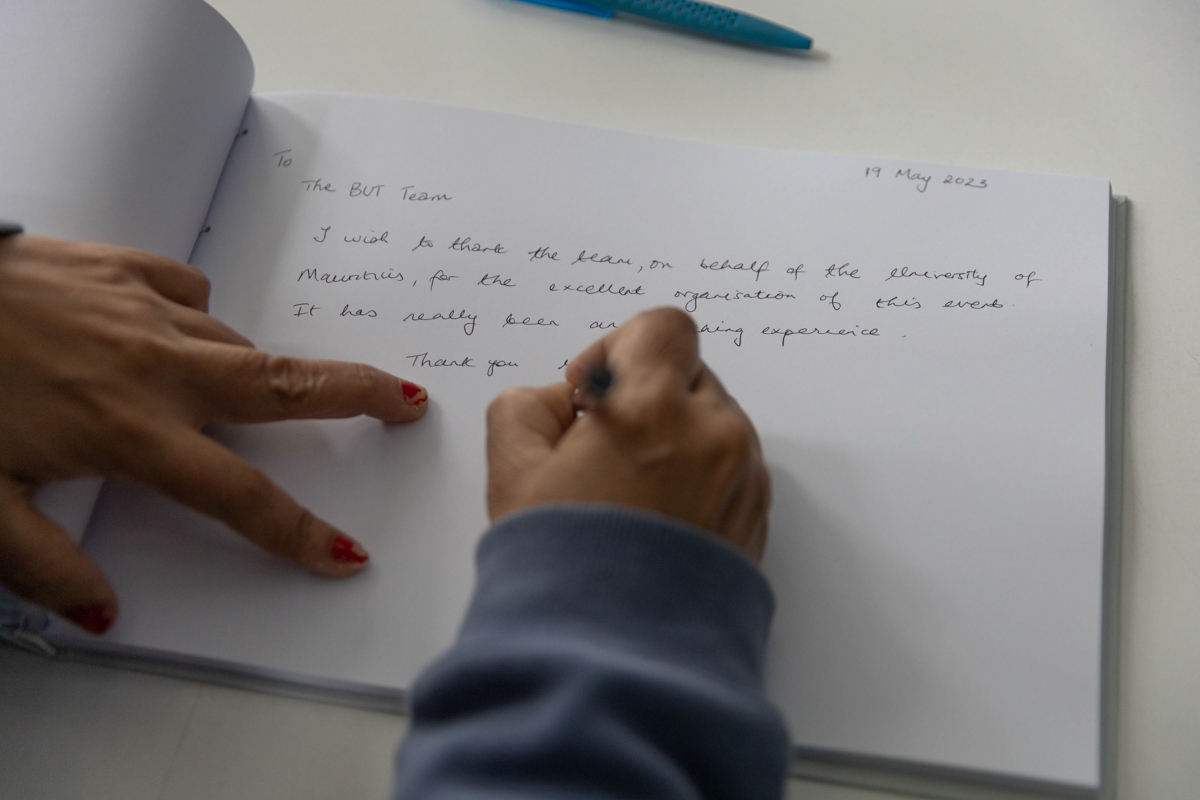 To
19 May 2023
The BUT Team
I wish to thank the team, on behalf of the University of
Mauritius, for the excellent organisation of this event.
It has really been an experience.
Thank you